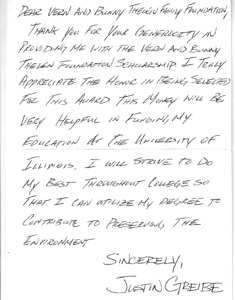 DEAR VERN AND BUNNY THELEN FAMILY FOUNDATION,
THANK YOU FOR YOUR GENEROCITY IN
PROVIDING ME WITH THE VERN AND BUNNY
THELEN FOUNDATION SCHOLARSHIP. I TRULY
APPRECIATE THE HONOR IN BEING SELECTED
FOR THIS AWARD THIS MONEY WILL BE
VERY HELPFUL IN FUNDING MY
EDUCATION AT THE UNIVERSITY OF
ILLINOIS. I WILL STRIVE TO DO
MY BEST THROUGHOUT COLLEGE SO
THAT I CAN UTILIZE MY DEGREE TO
CONTRIBUTE TO PRESERVING THE
ENVIRONMENT
SINCERELY,
JUSTIN